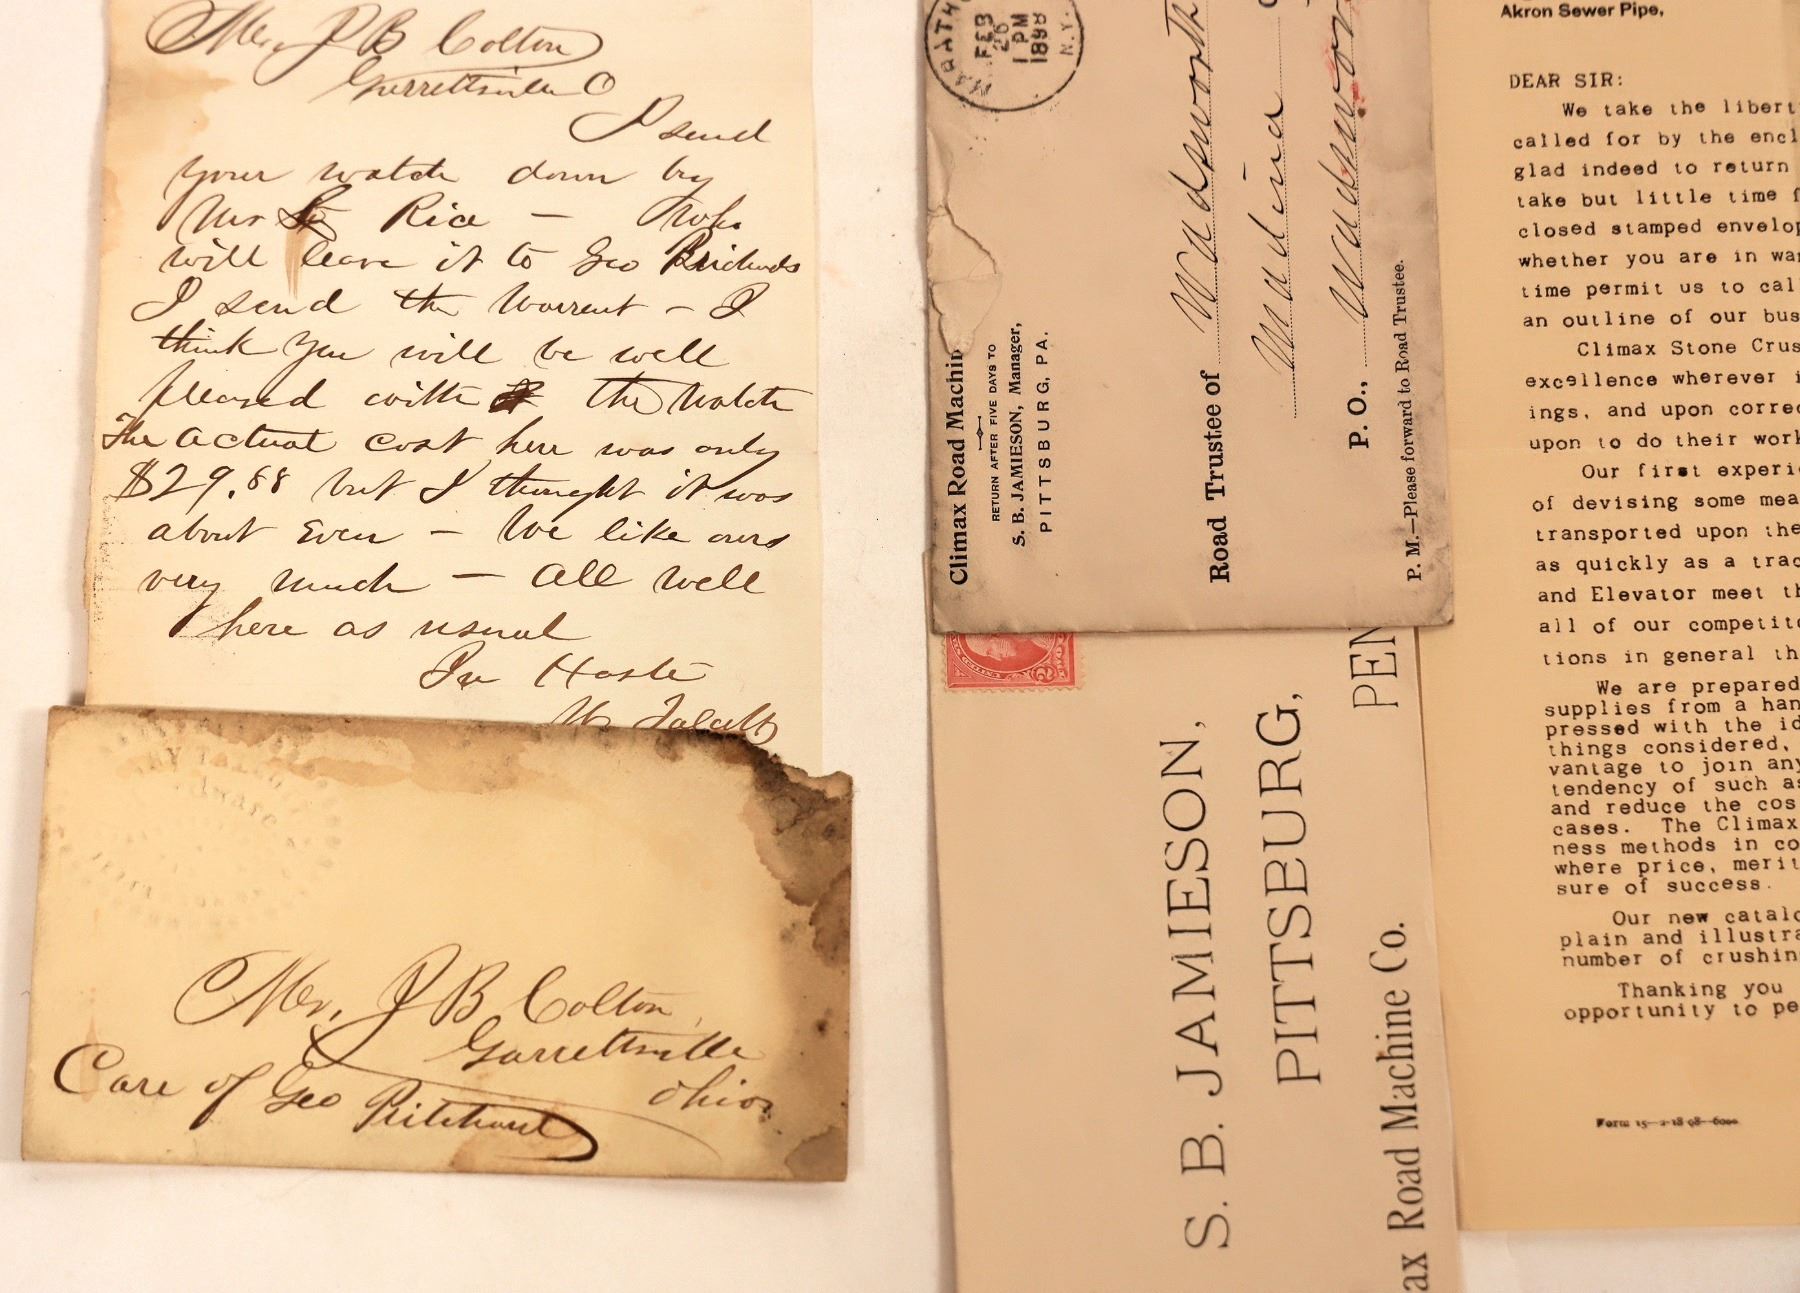 Mr. J B Colton
Garrettsville O
I send
your watch down by
Mr Rice — who
will leave it to Geo
I send the Warrent — I
think you will be well
pleased with the watch
The actual cost here was only
$29.88 but I thought it was
about Even — We like ours
very much — All well
here as usual
In Haste
Mr. J B Colton
Garrettsville
Ohio.
Care of Geo Pritchard
MARATHO
FEB
26
1 PM
1898
N.Y.
Climax Road Machin
RETURN AFTER FIVE DAYS TO
S. B. JAMIESON, Manager,
PITTSBURG, PA.
Road Trustee of Wadsworth
Medina
P. O., Wadsworth
P. M.—Please forward to Road Trustee.
2
S. B. JAMIESON,
PITTSBURG,
PEN
ax Road Machine Co.
Akron Sewer Pipe,
DEAR SIR:
We take the libert
called for by the encl
glad indeed to return
take but little time f
closed stamped envelop
whether you are in wa
time permit us to cal
an outline of our bus
Climax Stone Crus
excellence wherever i
ings, and upon correc
upon to do their work
Our first experi
of devising some mea
transported upon the
as quickly as a trac
and Elevator meet th
all of our competito
tions in general th
We are prepared
supplies from a han
pressed with the id
things considered,
vantage to join any
tendency of such as
and reduce the cos
cases. The Climax
ness methods in co
where price, merit
sure of success.
Our new catalo
plain and illustra
number of crushin
Thanking you
opportunity to pe
Form 15—2-18 98—6000